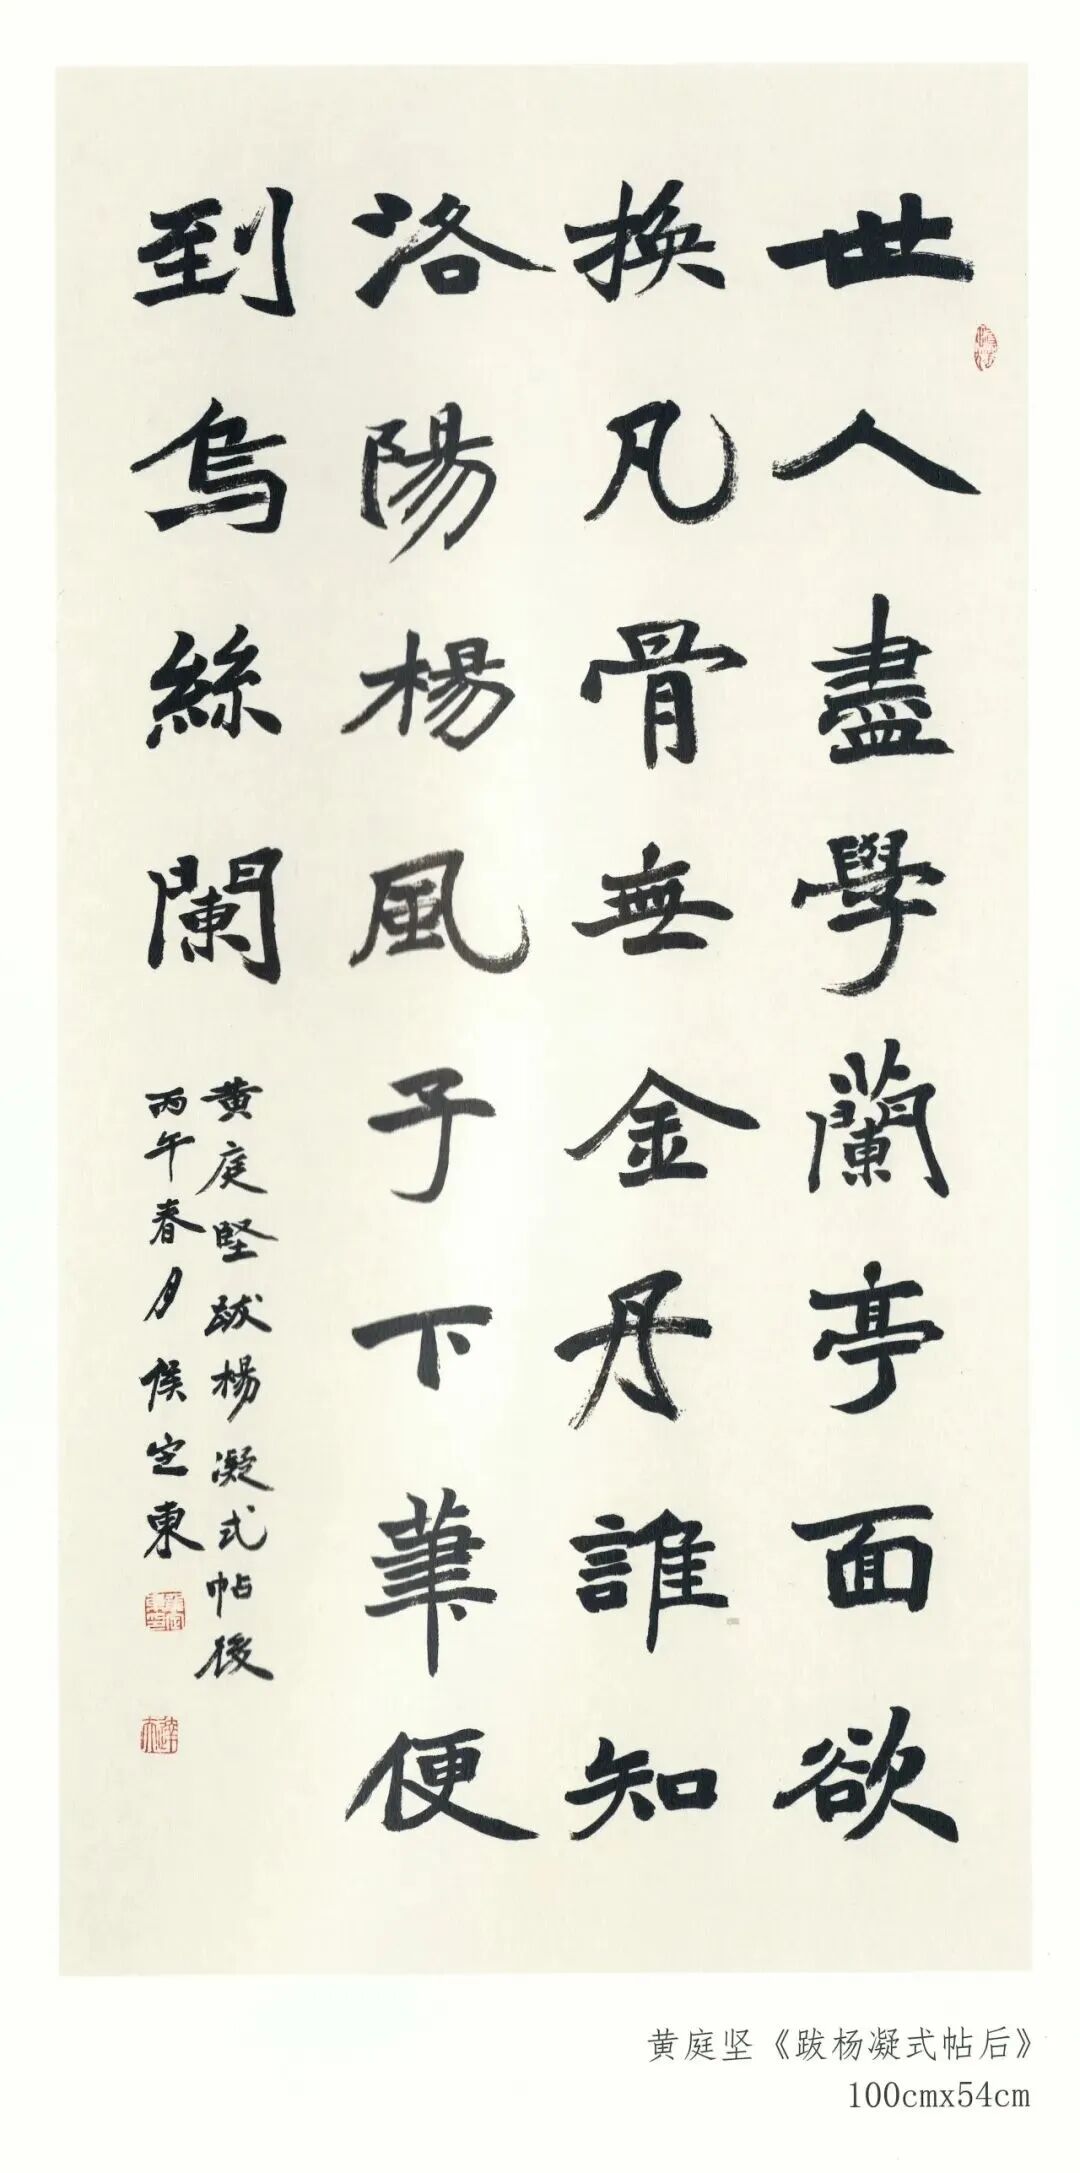 世人盡學蘭亭面欲
換凡骨無金丹誰知
洛陽楊風子下筆便
到烏絲闌
黄庭堅跋楊凝式帖後
丙午春月侯定東
黄庭坚《跋杨凝式帖后》
100cmx54cm